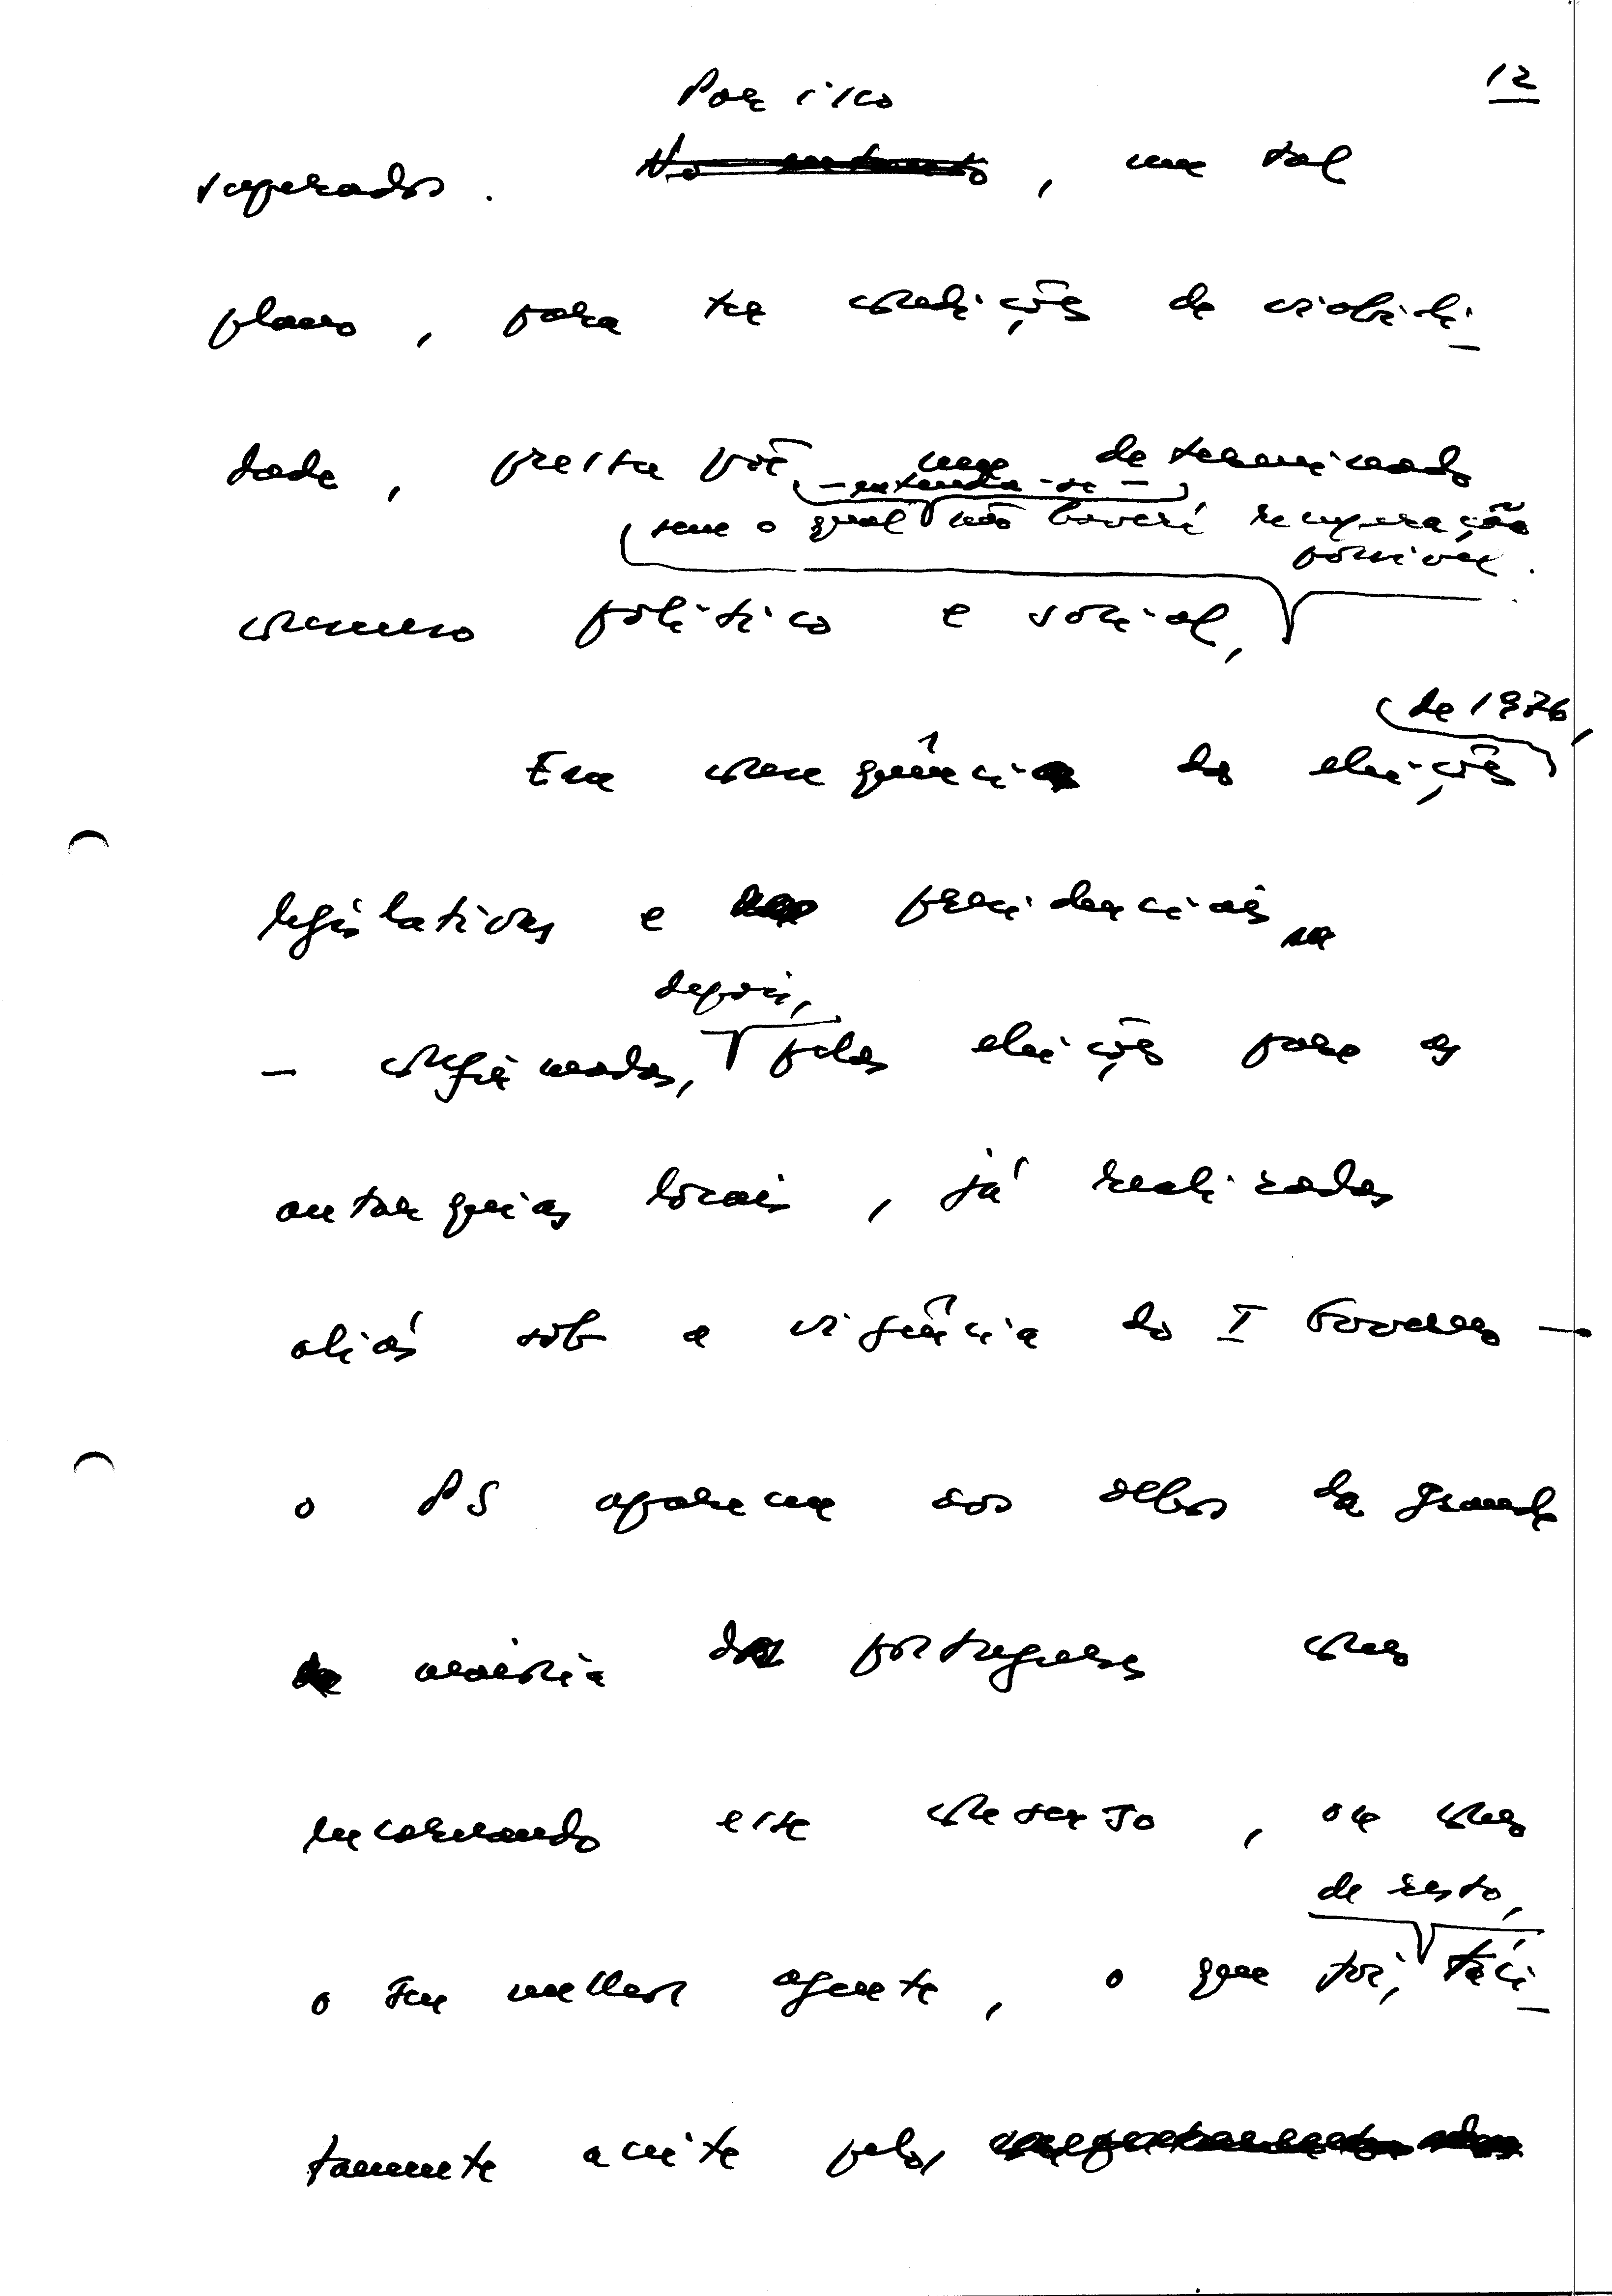 12
Por isso
superados. No entanto, um tal
plano, para ter condições de viabili-
dade, pressupõe um determinado
- entenda-se -
sem o qual não haverá recuperação
possível.
consenso político e social,
de 1976,
Em consequência das eleições
legislativas e presidenciais
depois,
- confirmadas, pelas eleições para as
autarquias locais, já realizadas
aliás sob a vigência do I Governo -
o PS aparecia aos olhos da grande
maioria dos portugueses como
encarnando esse consenso, ou como
de resto,
o seu melhor agente, o que foi, táci-
tamente aceite pelos